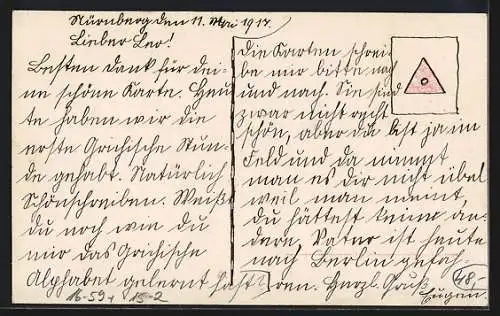 Nürnberg den 11. Mai 1917.
Lieber Leo!
Besten Dank für dei-
ne schöne Karte. Heu-
te haben wir die
erste Grichische Stun-
de gehabt. Natürlich
Schönschreiben. Weißt
du noch wie du
mir das Grichische
Alphabet gelernt hast?
Die Karten schrei-
be mir bitte nach
und nach. Sie sind
zwar nicht recht
schön, aber du bist ja im
Feld und da nimmt
man es dir nicht übel
weil man meint,
du hättest keine an-
dern. Vater ist heute
nach Berlin gefah-
ren. Herzl. Gruß
Eugen.
48,-
16-59+ 15-2